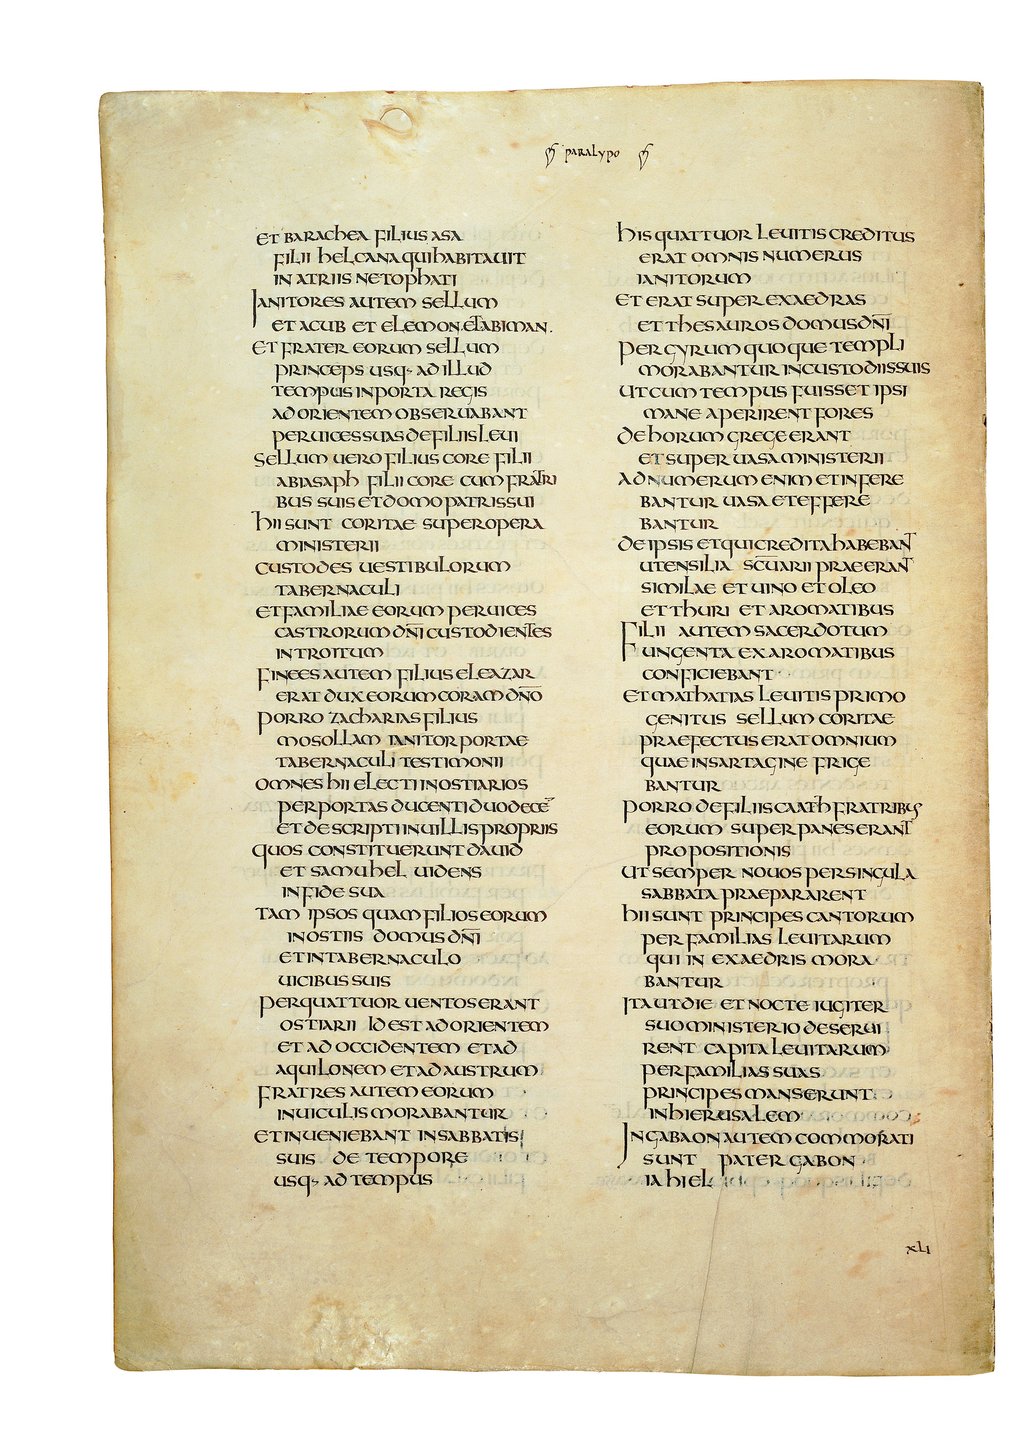 paralypo
ET BARACHEA FILIUS ASA
FILII HELCANA QUI HABITAUIT
IN ATRIIS NETOPHATI
IANITORES AUTEM SELLUM
ET ACUB ET ELEMON ET ABIMAN.
ET FRATER EORUM SELLUM
PRINCEPS USQ· AD ILLUD
TEMPUS IN PORTA REGIS
AD ORIENTEM OBSERUABANT
PER UICES SUAS DE FILIIS LEUI
SELLUM UERO FILIUS CORE FILII
ABIASAPH FILII CORE CUM FRATRI
BUS SUIS ET DOMO PATRIS SUI
HII SUNT CORITAE SUPER OPERA
MINISTERII
CUSTODES UESTIBULORUM
TABERNACULI
ET FAMILIAE EORUM PER UICES
CASTRORUM DN̄I CUSTODIENTES
INTROITUM
FINEES AUTEM FILIUS ELEAZAR
ERAT DUX EORUM CORAM DN̄O
PORRO ZACHARIAS FILIUS
MOSOLLAM IANITOR PORTAE
TABERNACULI TESTIMONII
OMNES HII ELECTI IN OSTIARIOS
PER PORTAS DUCENTI DUODECĒ
ET DESCRIPTI IN UILLIS PROPRIIS
QUOS CONSTITUERUNT DAUID
ET SAMUHEL UIDENS
IN FIDE SUA
TAM IPSOS QUAM FILIOS EORUM
IN OSTIIS DOMUS DN̄I
ET IN TABERNACULO
UICIBUS SUIS
PER QUATTUOR UENTOS ERANT
OSTIARII ID EST AD ORIENTEM
ET AD OCCIDENTEM ET AD
AQUILONEM ET AD AUSTRUM
FRATRES AUTEM EORUM
IN UICULIS MORABANTUR
ET INUENIEBANT IN SABBATIS
SUIS DE TEMPORE
USQ· AD TEMPUS
HIS QUATTUOR LEUITIS CREDITUS
ERAT OMNIS NUMERUS
IANITORUM
ET ERAT SUPER EXAEDRAS
ET THESAUROS DOMUS DN̄I
PER GYRUM QUOQUE TEMPLI
MORABANTUR IN CUSTODIIS SUIS
UT CUM TEMPUS FUISSET IPSI
MANE APERIRENT FORES
DE HORUM GREGE ERANT
ET SUPER UASA MINISTERII
AD NUMERUM ENIM ET INFERE
BANTUR UASA ET EFFERE
BANTUR
DE IPSIS ET QUI CREDITA HABEBANT
UTENSILIA SC̄UARII PRAEERANT
SIMILAE ET UINO ET OLEO
ET THURI ET AROMATIBUS
FILII AUTEM SACERDOTUM
FUNGENTA EX AROMATIBUS
CONFICIEBANT
ET MATHATIAS LEUITIS PRIMO
GENITUS SELLUM CORITAE
PRAEFECTUS ERAT OMNIUM
QUAE IN SARTAGINE FRIGE
BANTUR
PORRO DE FILIIS CAATH FRATRIBUS
EORUM SUPER PANES ERANT
PROPOSITIONIS
UT SEMPER NOUOS PER SINGULA
SABBATA PRAEPARARENT
HII SUNT PRINCIPES CANTORUM
PER FAMILIAS LEUITARUM
QUI IN EXAEDRIS MORA
BANTUR
ITA UT DIE ET NOCTE IUGITER
SUO MINISTERIO DESERUI
RENT CAPITA LEUITARUM
PER FAMILIAS SUAS
PRINCIPES MANSERUNT
IN HIERUSALEM
IN GABAON AUTEM COMMORATI
SUNT PATER GABON
IAHIEL
XLI